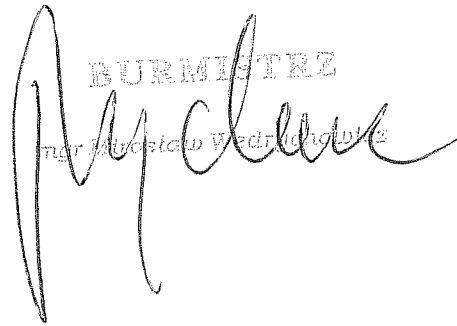 BURMISTRZ
mgr Mirosław Wędrychowicz